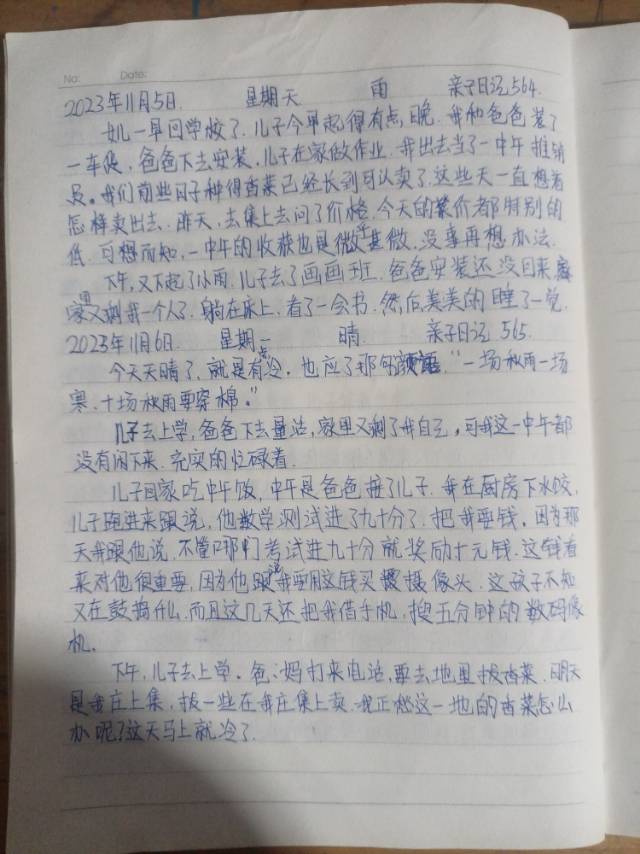 No: Date:
2023年11月5日. 星期天 雨 亲子日记.564.
女儿一早回学校了.儿子今早起得有点晚.我和爸爸装了
一车货,爸爸下去安装.儿子在家做作业.我出去当了一中午推销
员。我们前些日子种得香菜已经长到可以卖了.这些天一直想着
怎样卖出去.昨天,去集上去问了价格.今天的菜价都特别的
低.可想而知,一中午的收获也是微乎甚微.没事再想办法.
下午,又下起了小雨.儿子去了画画班.爸爸安装还没回来.
家里又剩我一个人了.躺在床上,看了一会书.然后美美的睡了一觉.
2023年11月6日. 星期一 晴 亲子日记 565.
今天天晴了,就是有点冷.也应了那句谚语."一场秋雨一场
寒.十场秋雨要穿棉。"
儿子去上学,爸爸下去量活,家里又剩了我自己,可我这一中午都
没有闲下来.充实的忙碌着.
儿子回家吃中午饭,中午是爸爸接了儿子.我在厨房下水饺,
儿子跑进来跟说,他数学测试进了九十分了.把我要钱.因为那
天我跟他说.不管哪门考试进九十分就奖励十元钱.这钱看
来对他很重要,因为他跟我说要用这钱买摄像头.这孩子不知
又在鼓捣什么.而且这几天还把我借手机.搜五分钟的数码像
机.
下午,儿子去上学.爸、妈打来电话,要去地里拔香菜.明天
是我庄上集,拔一些在我庄集上卖.我正愁这一地的香菜怎么
办呢?这天马上就冷了.